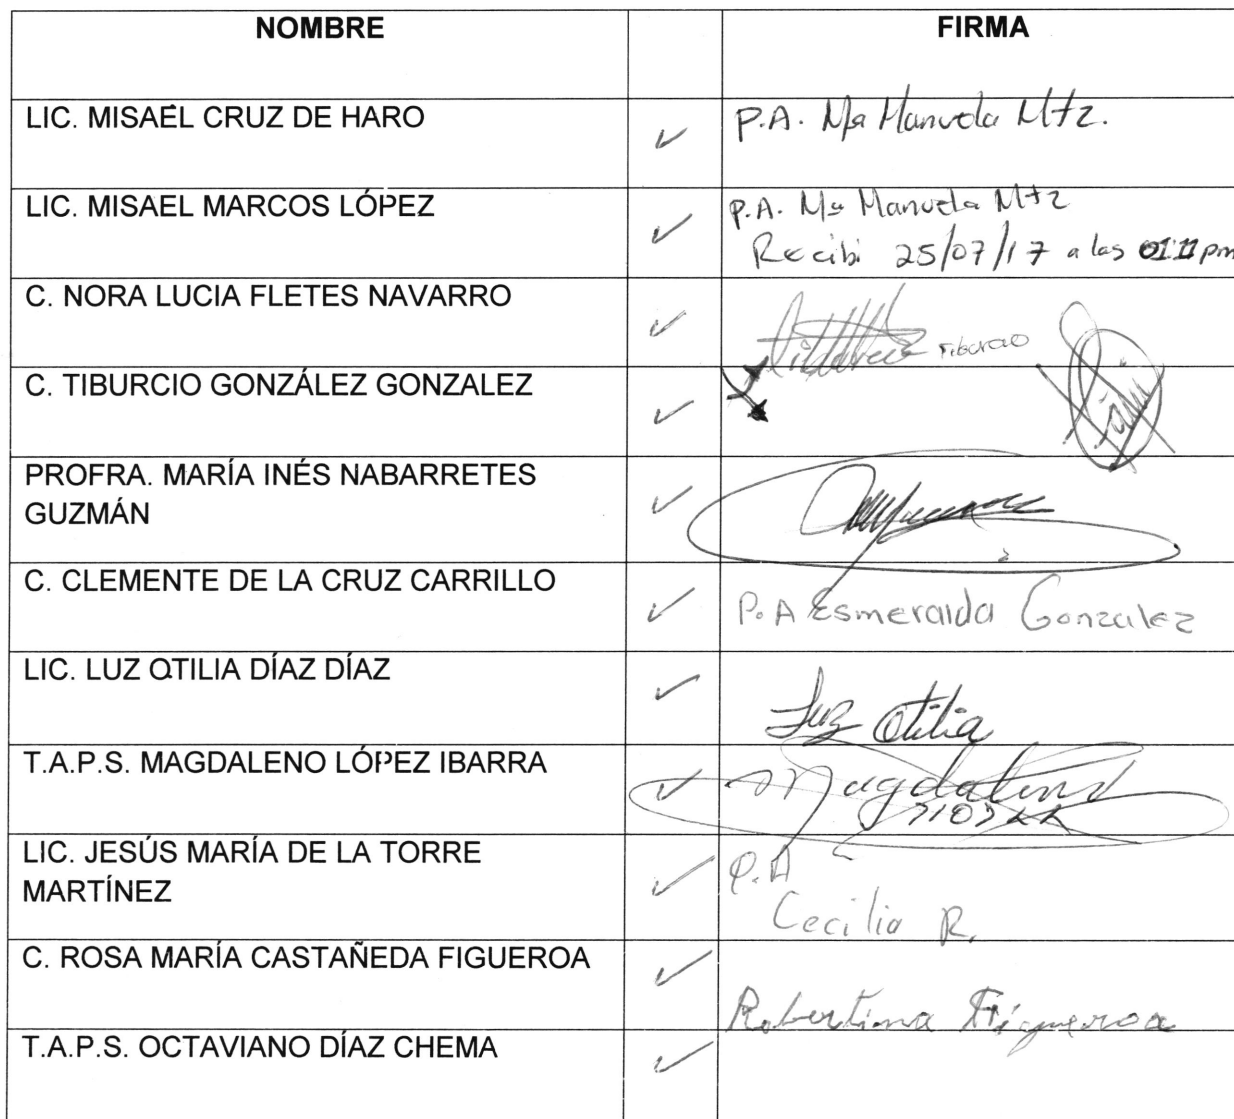 NOMBRE FIRMA
LIC. MISAEL CRUZ DE HARO P.A. Ma Manuela Mtz.
LIC. MISAEL MARCOS LÓPEZ P.A. Ma Manuela Mtz
Recibi 25/07/17 a las 01:11 pm
C. NORA LUCIA FLETES NAVARRO
C. TIBURCIO GONZÁLEZ GONZALEZ
PROFRA. MARÍA INÉS NABARRETES
GUZMÁN
C. CLEMENTE DE LA CRUZ CARRILLO P.A Esmeralda Gonzalez
LIC. LUZ OTILIA DÍAZ DÍAZ Luz Otilia
T.A.P.S. MAGDALENO LÓPEZ IBARRA Magdaleno
LIC. JESÚS MARÍA DE LA TORRE P.A
MARTÍNEZ Cecilia R.
C. ROSA MARÍA CASTAÑEDA FIGUEROA Robertina Figueroa
T.A.P.S. OCTAVIANO DÍAZ CHEMA